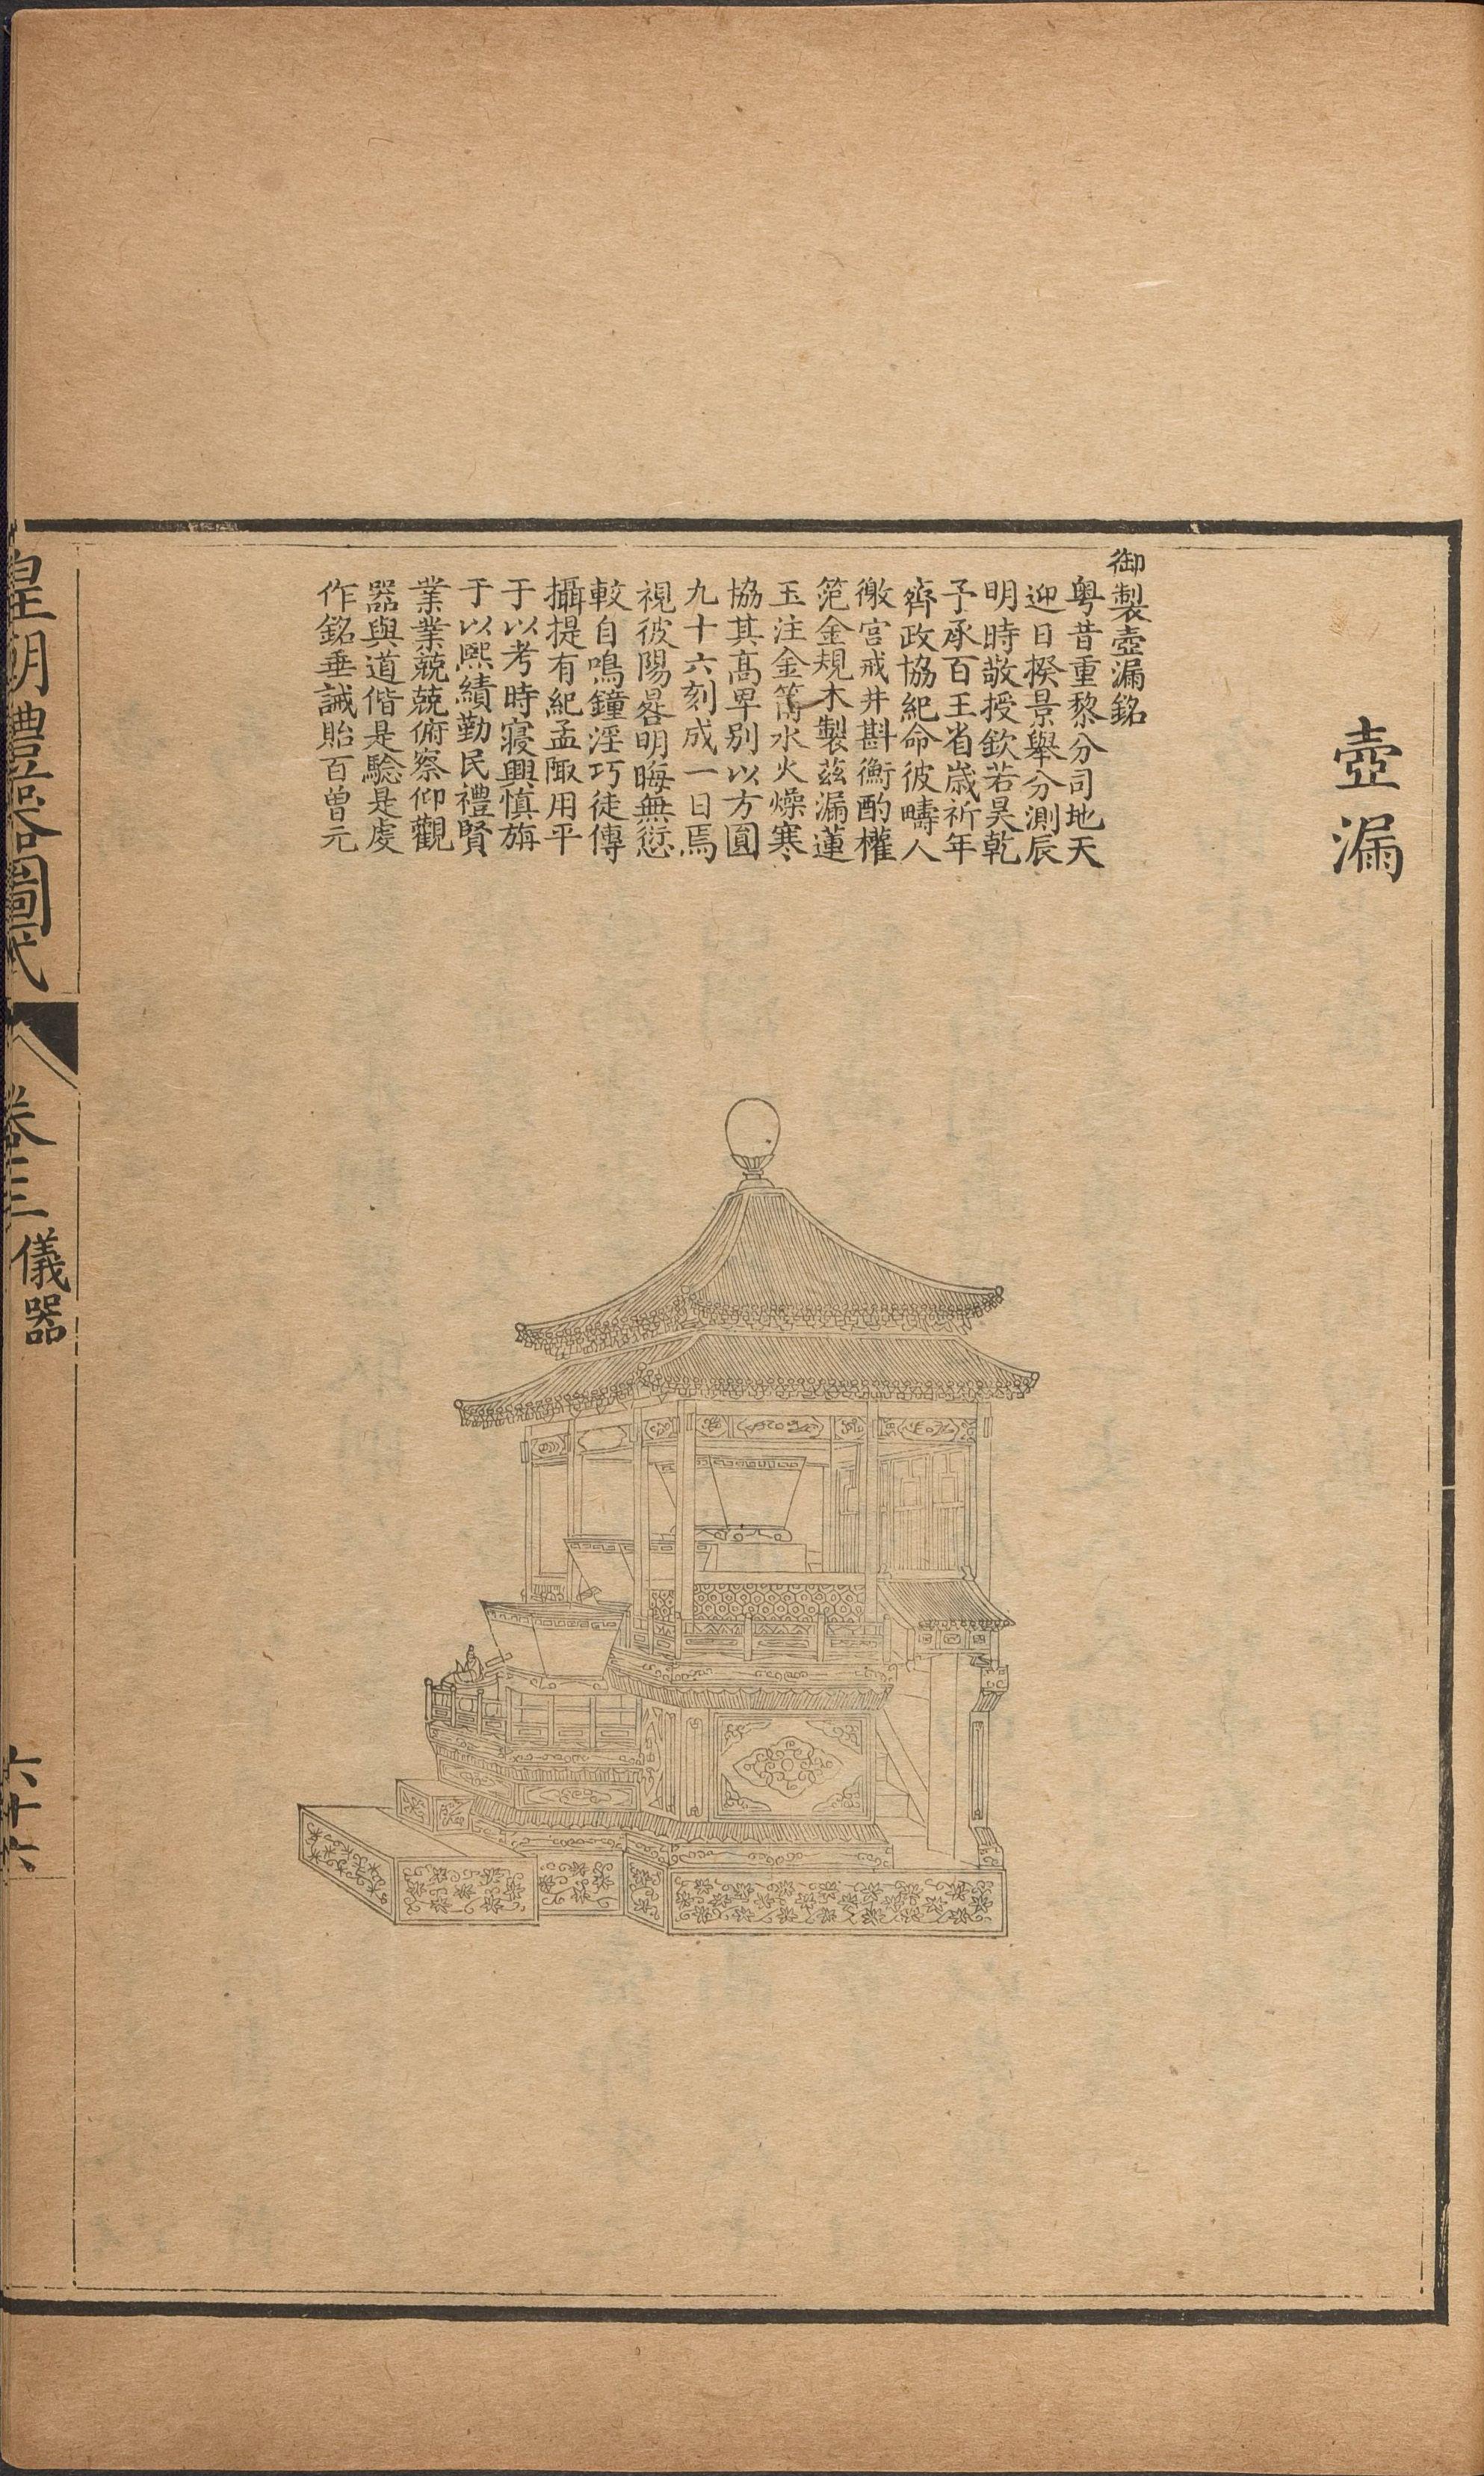 壺漏
御製壺漏銘
粤昔重黎分司地天
迎日揆景舉分測辰
明時敬授欽若昊乾
予承百王省歲祈年
齊政協紀命彼疇人
徹宫戒井斟衡酌權
笵金規木製兹漏蓮
玉注金筩水火燥寒
協其髙卑别以方圓
九十六刻成一日焉
視彼陽晷明晦無愆
較自鳴鐘淫巧徒傳
攝提有紀孟陬用平
于以考時寢興慎旃
于以熙績勤民禮賢
業業兢兢俯察仰觀
器與道偕是驗是虔
作銘垂誡貽百曾元
皇朝禮器圖式
卷三
儀器
六十六